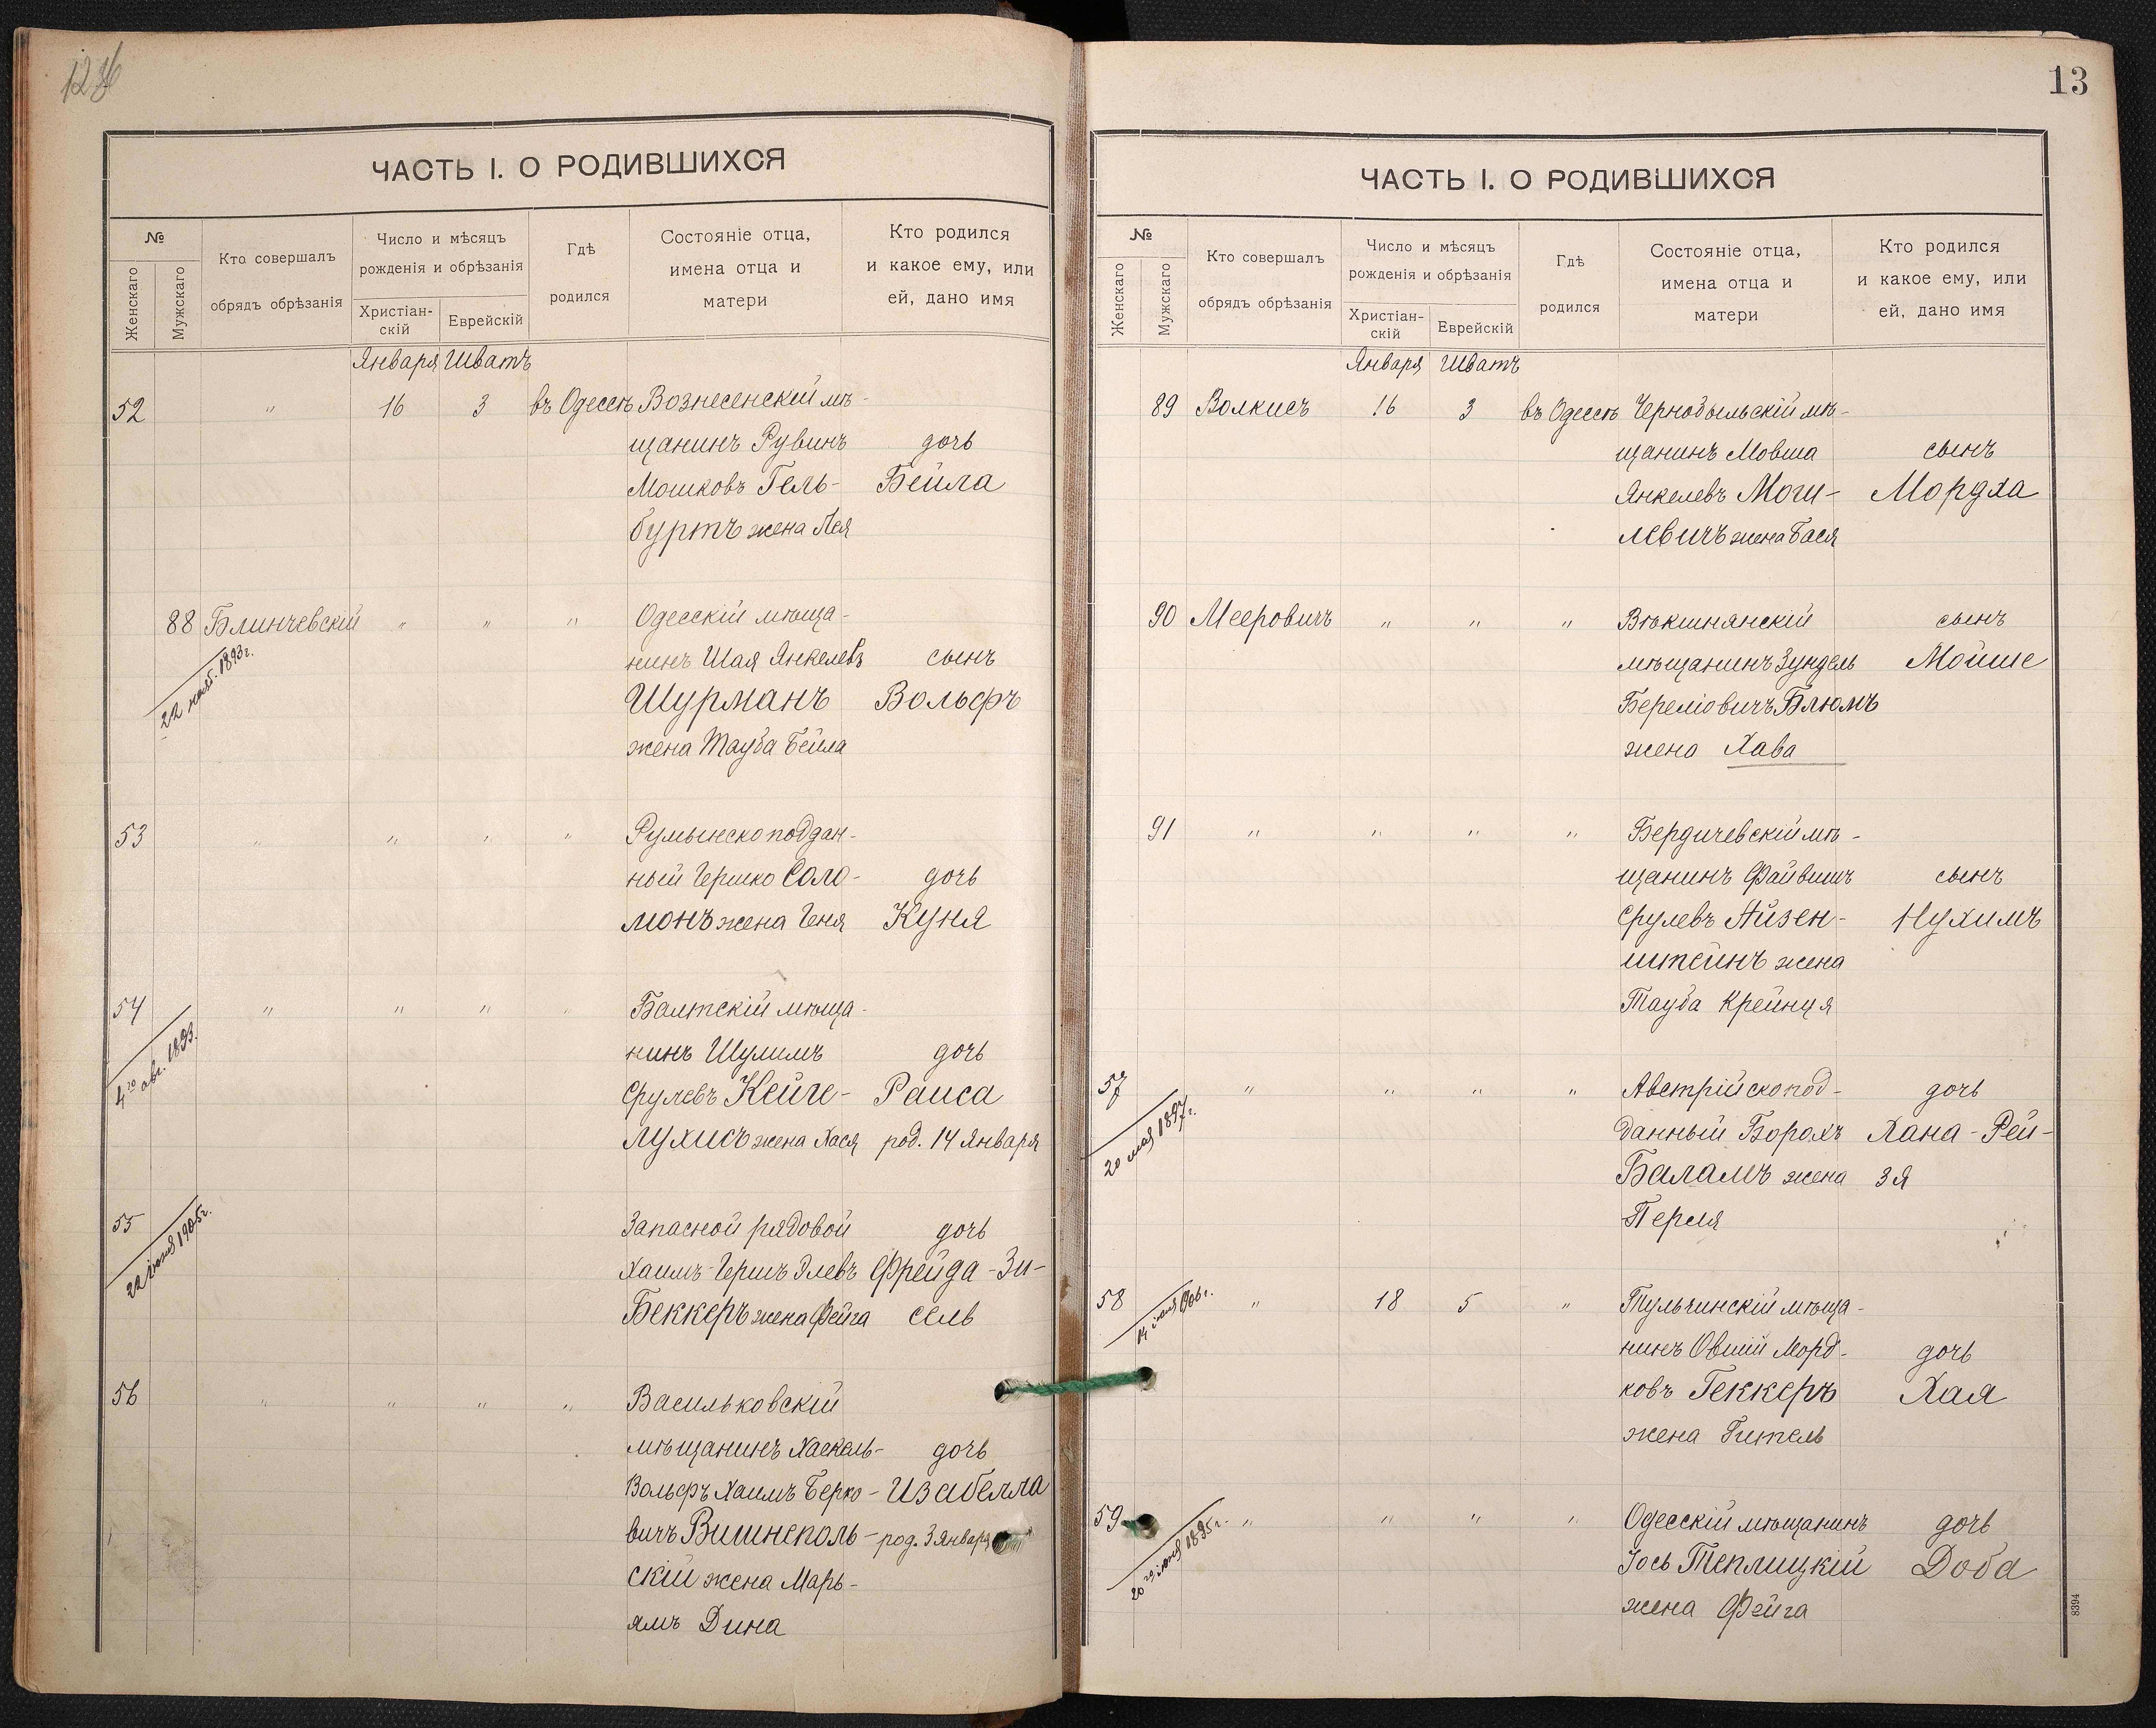 12
ЧАСТЬ I. О РОДИВШИХСЯ
№
Женскаго
Мужскаго
Кто совершалъ
обрядъ обрѣзанія
Число и мѣсяцъ
рожденія и обрѣзанія
Христіан-
скій
Еврейскій
Гдѣ
родился
Состояніе отца,
имена отца и
матери
Кто родился
и какое ему, или
ей, дано имя
Января Шватъ
52 " 16 3 въ Одессѣ Вознесенскій мѣ-
щанинъ Рувинъ дочь
Мошковъ Гель- Бейла
буртъ жена Лея
88 Блинчевскій " " " Одесскій мѣща-
22 нояб. 1893г.
нинъ Шая Янкелевъ сынъ
Шурманъ Вольфъ
жена Тауба Бейла
53 " " " " Румынскоподдан-
ный Гершко Соло- дочь
монъ жена Геня Куня
54 " " " " Балтскій мѣща-
4го авг. 1893.
нинъ Шулимъ дочь
Срулевъ Кейге- Раиса
лухисъ жена Хася род. 14 Января
55 Запасной рядовой дочь
22 іюня 1905г.
Хаимъ-Гершъ Элевъ Фрейда-Зи-
Беккеръ жена Фейга сель
56 " " " " Васильковскій
мѣщанинъ Хаскель- дочь
Вольфъ Хаимъ Берко- Изабелла
вичъ Вишнеполь- род. 3 Января
скій жена Марь-
ямъ Дина
13
ЧАСТЬ I. О РОДИВШИХСЯ
№
Женскаго
Мужскаго
Кто совершалъ
обрядъ обрѣзанія
Число и мѣсяцъ
рожденія и обрѣзанія
Христіан-
скій
Еврейскій
Гдѣ
родился
Состояніе отца,
имена отца и
матери
Кто родился
и какое ему, или
ей, дано имя
Января Шватъ
89 Волкисъ 16 3 въ Одессѣ Чернобыльскій мѣ-
щанинъ Мовша сынъ
Янкелевъ Моги- Мордха
левичъ жена Бася
90 Мееровичъ " " " Вѣкшнянскій сынъ
мѣщанинъ Зундель Мойше
Береліовичъ Блюмъ
жена Хава
91 " " " " Бердичевскій мѣ-
щанинъ Файвишъ сынъ
Срулевъ Айзен- Нухимъ
штейнъ жена
Тауба Крейнця
57 " " " " Австрійскопод- дочь
20 мая 1897г.
данный Борохъ Хана-Рей-
Баламъ жена зя
Перля
58 " 18 5 " Тульчинскій мѣща-
нинъ Овшій Морд- дочь
ковъ Геккеръ Хая
жена Гитель
59 " " " " Одесскій мѣщанинъ дочь
Іось Теплицкій Доба
жена Фейга
8394